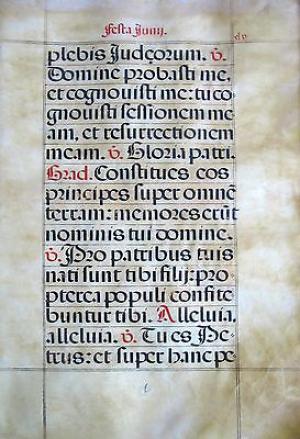 Festa Junij.
plebis Judęorum. V.
Domine probasti me,
et cognouisti me: tu co
gnouisti sessionem me
am, et resurrectionem
meam. V. Gloria patri.
Grad. Constitues eos
principes super omnē
terram: memores erūt
nominis tui domine.
V. Pro patribus tuis
nati sunt tibi filij: pro
pterea populi confite
buntur tibi. Alleluia.
alleluia. V. Tu es Pe
trus: et super hanc pe